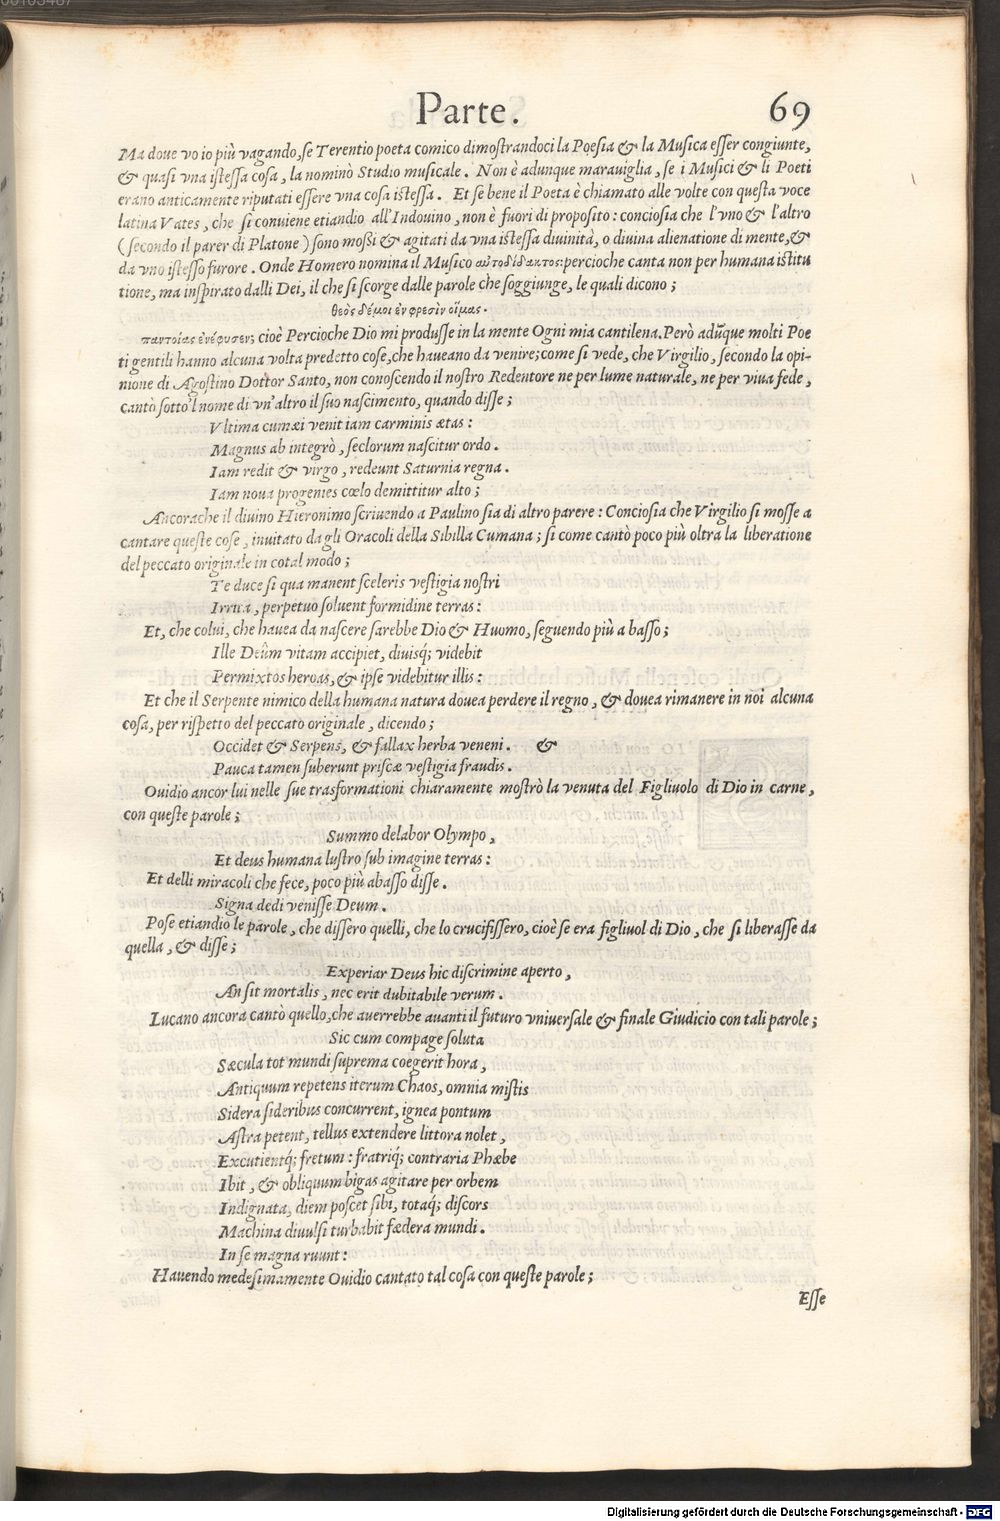 Parte. 69
Ma doue vo io più vagando, se Terentio poeta comico dimostrandoci la Poesia & la Musica esser congiunte,
& quasi vna istessa cosa, la nominò Studio musicale. Non è adunque marauiglia, se i Musici & li Poeti
erano anticamente riputati essere vna cosa istessa. Et se bene il Poeta è chiamato alle volte con questa voce
latina Vates, che si conuiene etiandio all'Indouino, non è fuori di proposito: conciosia che l'vno & l'altro
(secondo il parer di Platone) sono moßi & agitati da vna istessa diuinità, o diuina alienatione di mente, &
da vno istesso furore. Onde Homero nomina il Musico αὐτοδίδακτος: percioche canta non per humana istitu
tione, ma inspirato dalli Dei, il che si scorge dalle parole che soggiunge, le quali dicono;
θεὸς δέμοι ἐν φρεσὶν οἴμας.
παντοίας ἐνέφυσεν; cioè Percioche Dio mi produsse in la mente Ogni mia cantilena. Però adūque molti Poe
ti gentili hanno alcuna volta predetto cose, che haueano da venire; come si vede, che Virgilio, secondo la opi-
nione di Agostino Dottor Santo, non conoscendo il nostro Redentore ne per lume naturale, ne per viua fede,
cantò sotto'l nome di vn'altro il suo nascimento, quando disse;
Vltima cumæi venit iam carminis ætas:
Magnus ab integrò, seclorum nascitur ordo.
Iam redit & virgo, redeunt Saturnia regna.
Iam noua progenies cœlo demittitur alto;
Ancorache il diuino Hieronimo scriuendo a Paulino sia di altro parere: Conciosia che Virgilio si mosse a
cantare queste cose, inuitato da gli Oracoli della Sibilla Cumana; si come cantò poco più oltra la liberatione
del peccato originale in cotal modo;
Te duce si qua manent sceleris vestigia nostri
Irrita, perpetuo soluent formidine terras:
Et, che colui, che hauea da nascere sarebbe Dio & Huomo, seguendo più a basso;
Ille Deûm vitam accipiet, diuisq; videbit
Permixtos heroas, & ipse videbitur illis:
Et che il Serpente nimico della humana natura douea perdere il regno, & douea rimanere in noi alcuna
cosa, per rispetto del peccato originale, dicendo;
Occidet & Serpens, & fallax herba veneni. &
Pauca tamen suberunt priscæ vestigia fraudis.
Ouidio ancor lui nelle sue trasformationi chiaramente mostrò la venuta del Figliuolo di Dio in carne,
con queste parole;
Summo delabor Olympo,
Et deus humana lustro sub imagine terras:
Et delli miracoli che fece, poco più abasso disse.
Signa dedi venisse Deum.
Pose etiandio le parole, che dissero quelli, che lo crucifissero, cioè se era figliuol di Dio, che si liberasse da
quella, & disse;
Experiar Deus hic discrimine aperto,
An sit mortalis, nec erit dubitabile verum.
Lucano ancora cantò quello, che auerrebbe auanti il futuro vniuersale & finale Giudicio con tali parole;
Sic cum compage soluta
Sæcula tot mundi suprema coegerit hora,
Antiquum repetens iterum Chaos, omnia mistis
Sidera sideribus concurrent, ignea pontum
Astra petent, tellus extendere littora nolet,
Excutientq; fretum: fratriq; contraria Phæbe
Ibit, & obliquum bigas agitare per orbem
Indignata, diem poscet sibi, totaq; discors
Machina diuulsi turbabit fædera mundi.
In se magna ruunt:
Hauendo medesimamente Ouidio cantato tal cosa con queste parole;
Esse
Digitalisierung gefördert durch die Deutsche Forschungsgemeinschaft - DFG